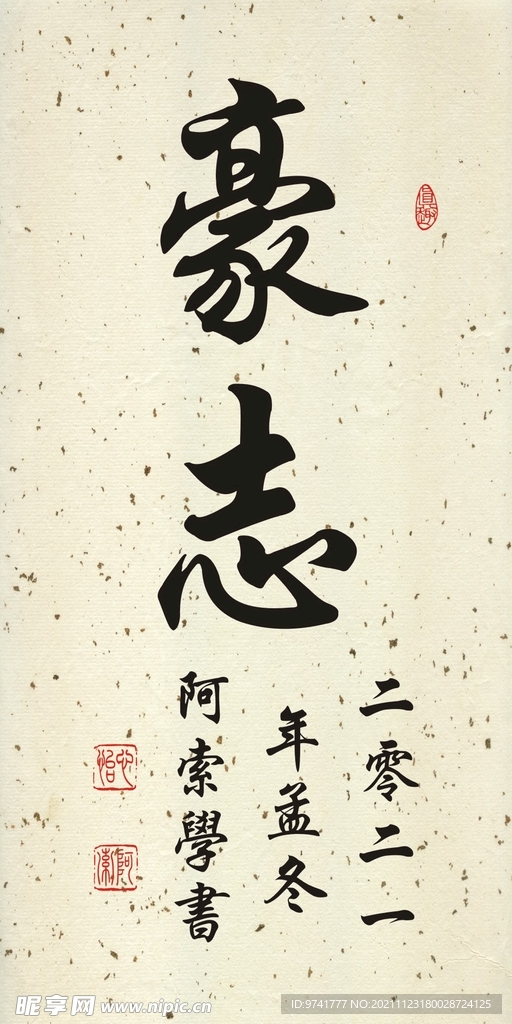 豪志
二零二一
年孟冬
阿索學書
昵享网 www.nipic.cn
ID:9741777 NO:20211123180028724125